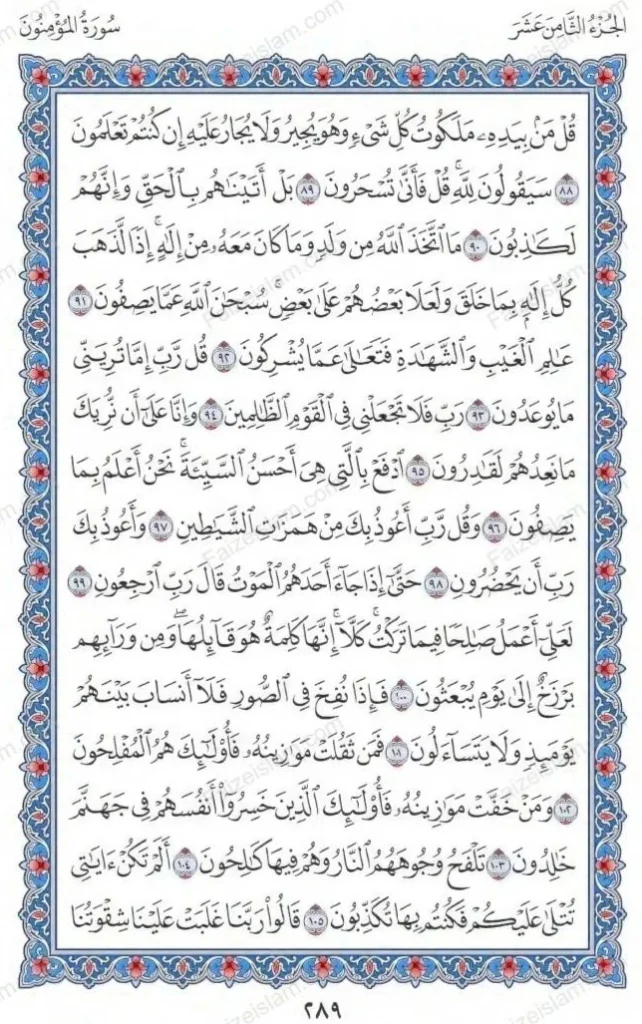 الجُزْءُ الثَّامِنَ عَشَرَ
سُورَةُ المُؤْمِنُونَ
قُلْ مَنۢ بِيَدِهِۦ مَلَكُوتُ كُلِّ شَىْءٍ وَهُوَ يُجِيرُ وَلَا يُجَارُ عَلَيْهِ إِن كُنتُمْ تَعْلَمُونَ
٨٨ سَيَقُولُونَ لِلَّهِ ۚ قُلْ فَأَنَّىٰ تُسْحَرُونَ ٨٩ بَلْ أَتَيْنَٰهُم بِالْحَقِّ وَإِنَّهُمْ
لَكَٰذِبُونَ ٩٠ مَا اتَّخَذَ اللَّهُ مِن وَلَدٍ وَمَا كَانَ مَعَهُۥ مِنْ إِلَٰهٍ ۚ إِذًا لَّذَهَبَ
كُلُّ إِلَٰهٍۭ بِمَا خَلَقَ وَلَعَلَا بَعْضُهُمْ عَلَىٰ بَعْضٍ ۚ سُبْحَٰنَ اللَّهِ عَمَّا يَصِفُونَ ٩١
عَٰلِمِ الْغَيْبِ وَالشَّهَٰدَةِ فَتَعَٰلَىٰ عَمَّا يُشْرِكُونَ ٩٢ قُل رَّبِّ إِمَّا تُرِيَنِّى
مَا يُوعَدُونَ ٩٣ رَبِّ فَلَا تَجْعَلْنِى فِى الْقَوْمِ الظَّٰلِمِينَ ٩٤ وَإِنَّا عَلَىٰٓ أَن نُّرِيَكَ
مَا نَعِدُهُمْ لَقَٰدِرُونَ ٩٥ ادْفَعْ بِالَّتِى هِىَ أَحْسَنُ السَّيِّئَةَ ۚ نَحْنُ أَعْلَمُ بِمَا
يَصِفُونَ ٩٦ وَقُل رَّبِّ أَعُوذُ بِكَ مِنْ هَمَزَٰتِ الشَّيَٰطِينِ ٩٧ وَأَعُوذُ بِكَ
رَبِّ أَن يَحْضُرُونِ ٩٨ حَتَّىٰٓ إِذَا جَآءَ أَحَدَهُمُ الْمَوْتُ قَالَ رَبِّ ارْجِعُونِ ٩٩
لَعَلِّىٓ أَعْمَلُ صَٰلِحًا فِيمَا تَرَكْتُ ۚ كَلَّآ ۚ إِنَّهَا كَلِمَةٌ هُوَ قَآئِلُهَا ۖ وَمِن وَرَآئِهِم
بَرْزَخٌ إِلَىٰ يَوْمِ يُبْعَثُونَ ١٠٠ فَإِذَا نُفِخَ فِى الصُّورِ فَلَآ أَنسَابَ بَيْنَهُمْ
يَوْمَئِذٍ وَلَا يَتَسَآءَلُونَ ١٠١ فَمَن ثَقُلَتْ مَوَٰزِينُهُۥ فَأُو۟لَٰٓئِكَ هُمُ الْمُفْلِحُونَ
١٠٢ وَمَنْ خَفَّتْ مَوَٰزِينُهُۥ فَأُو۟لَٰٓئِكَ الَّذِينَ خَسِرُوٓا۟ أَنفُسَهُمْ فِى جَهَنَّمَ
خَٰلِدُونَ ١٠٣ تَلْفَحُ وُجُوهَهُمُ النَّارُ وَهُمْ فِيهَا كَٰلِحُونَ ١٠٤ أَلَمْ تَكُنْ ءَايَٰتِى
تُتْلَىٰ عَلَيْكُمْ فَكُنتُم بِهَا تُكَذِّبُونَ ١٠٥ قَالُوا۟ رَبَّنَا غَلَبَتْ عَلَيْنَا شِقْوَتُنَا
٢٨٩
Faizeislam.com